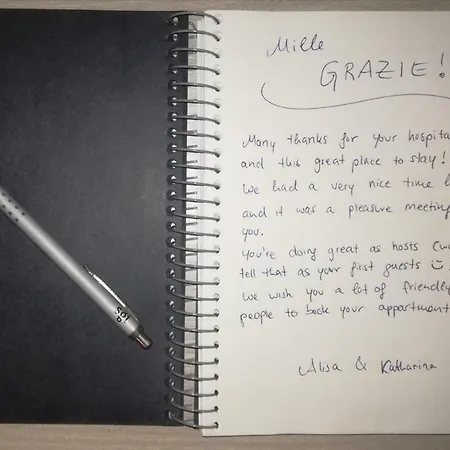 Mille
GRAZIE!
Many thanks for your hospita
and this great place to stay!
We had a very nice time
and it was a pleasure meeting
you.
You're doing great as hosts (we
tell that as your first guests ☺
We wish you a lot of friendly
people to book your appartment
Alisa & Katharina